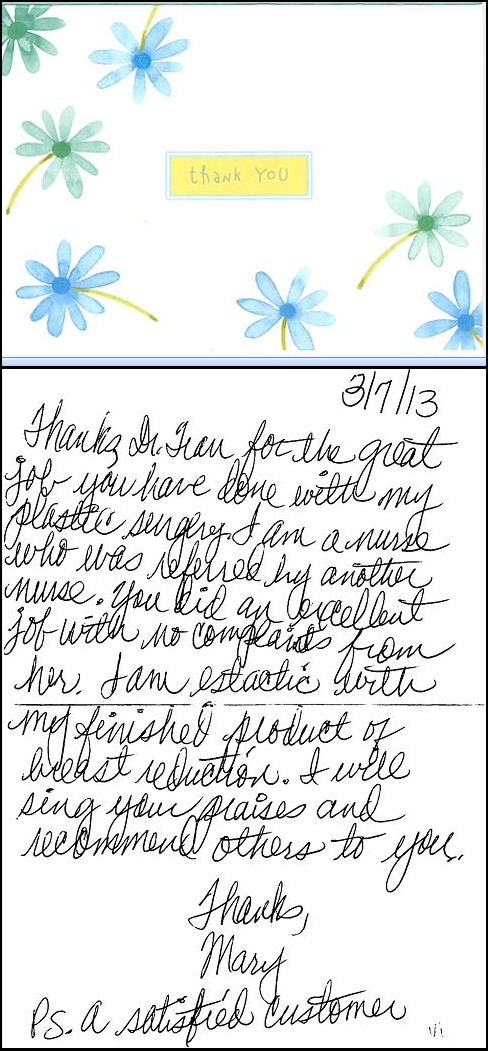 thank YOU
3/7/13
Thanks Dr. Tran for the great
job you have done with my
plastic surgery. I am a nurse
who was referred by another
nurse. You did an excellent
job with no complaints from
her. I am estactic with
my finished product of
breast reduction. I will
sing your praises and
recommend others to you.
Thanks,
Mary
Ps. A satisfied customer